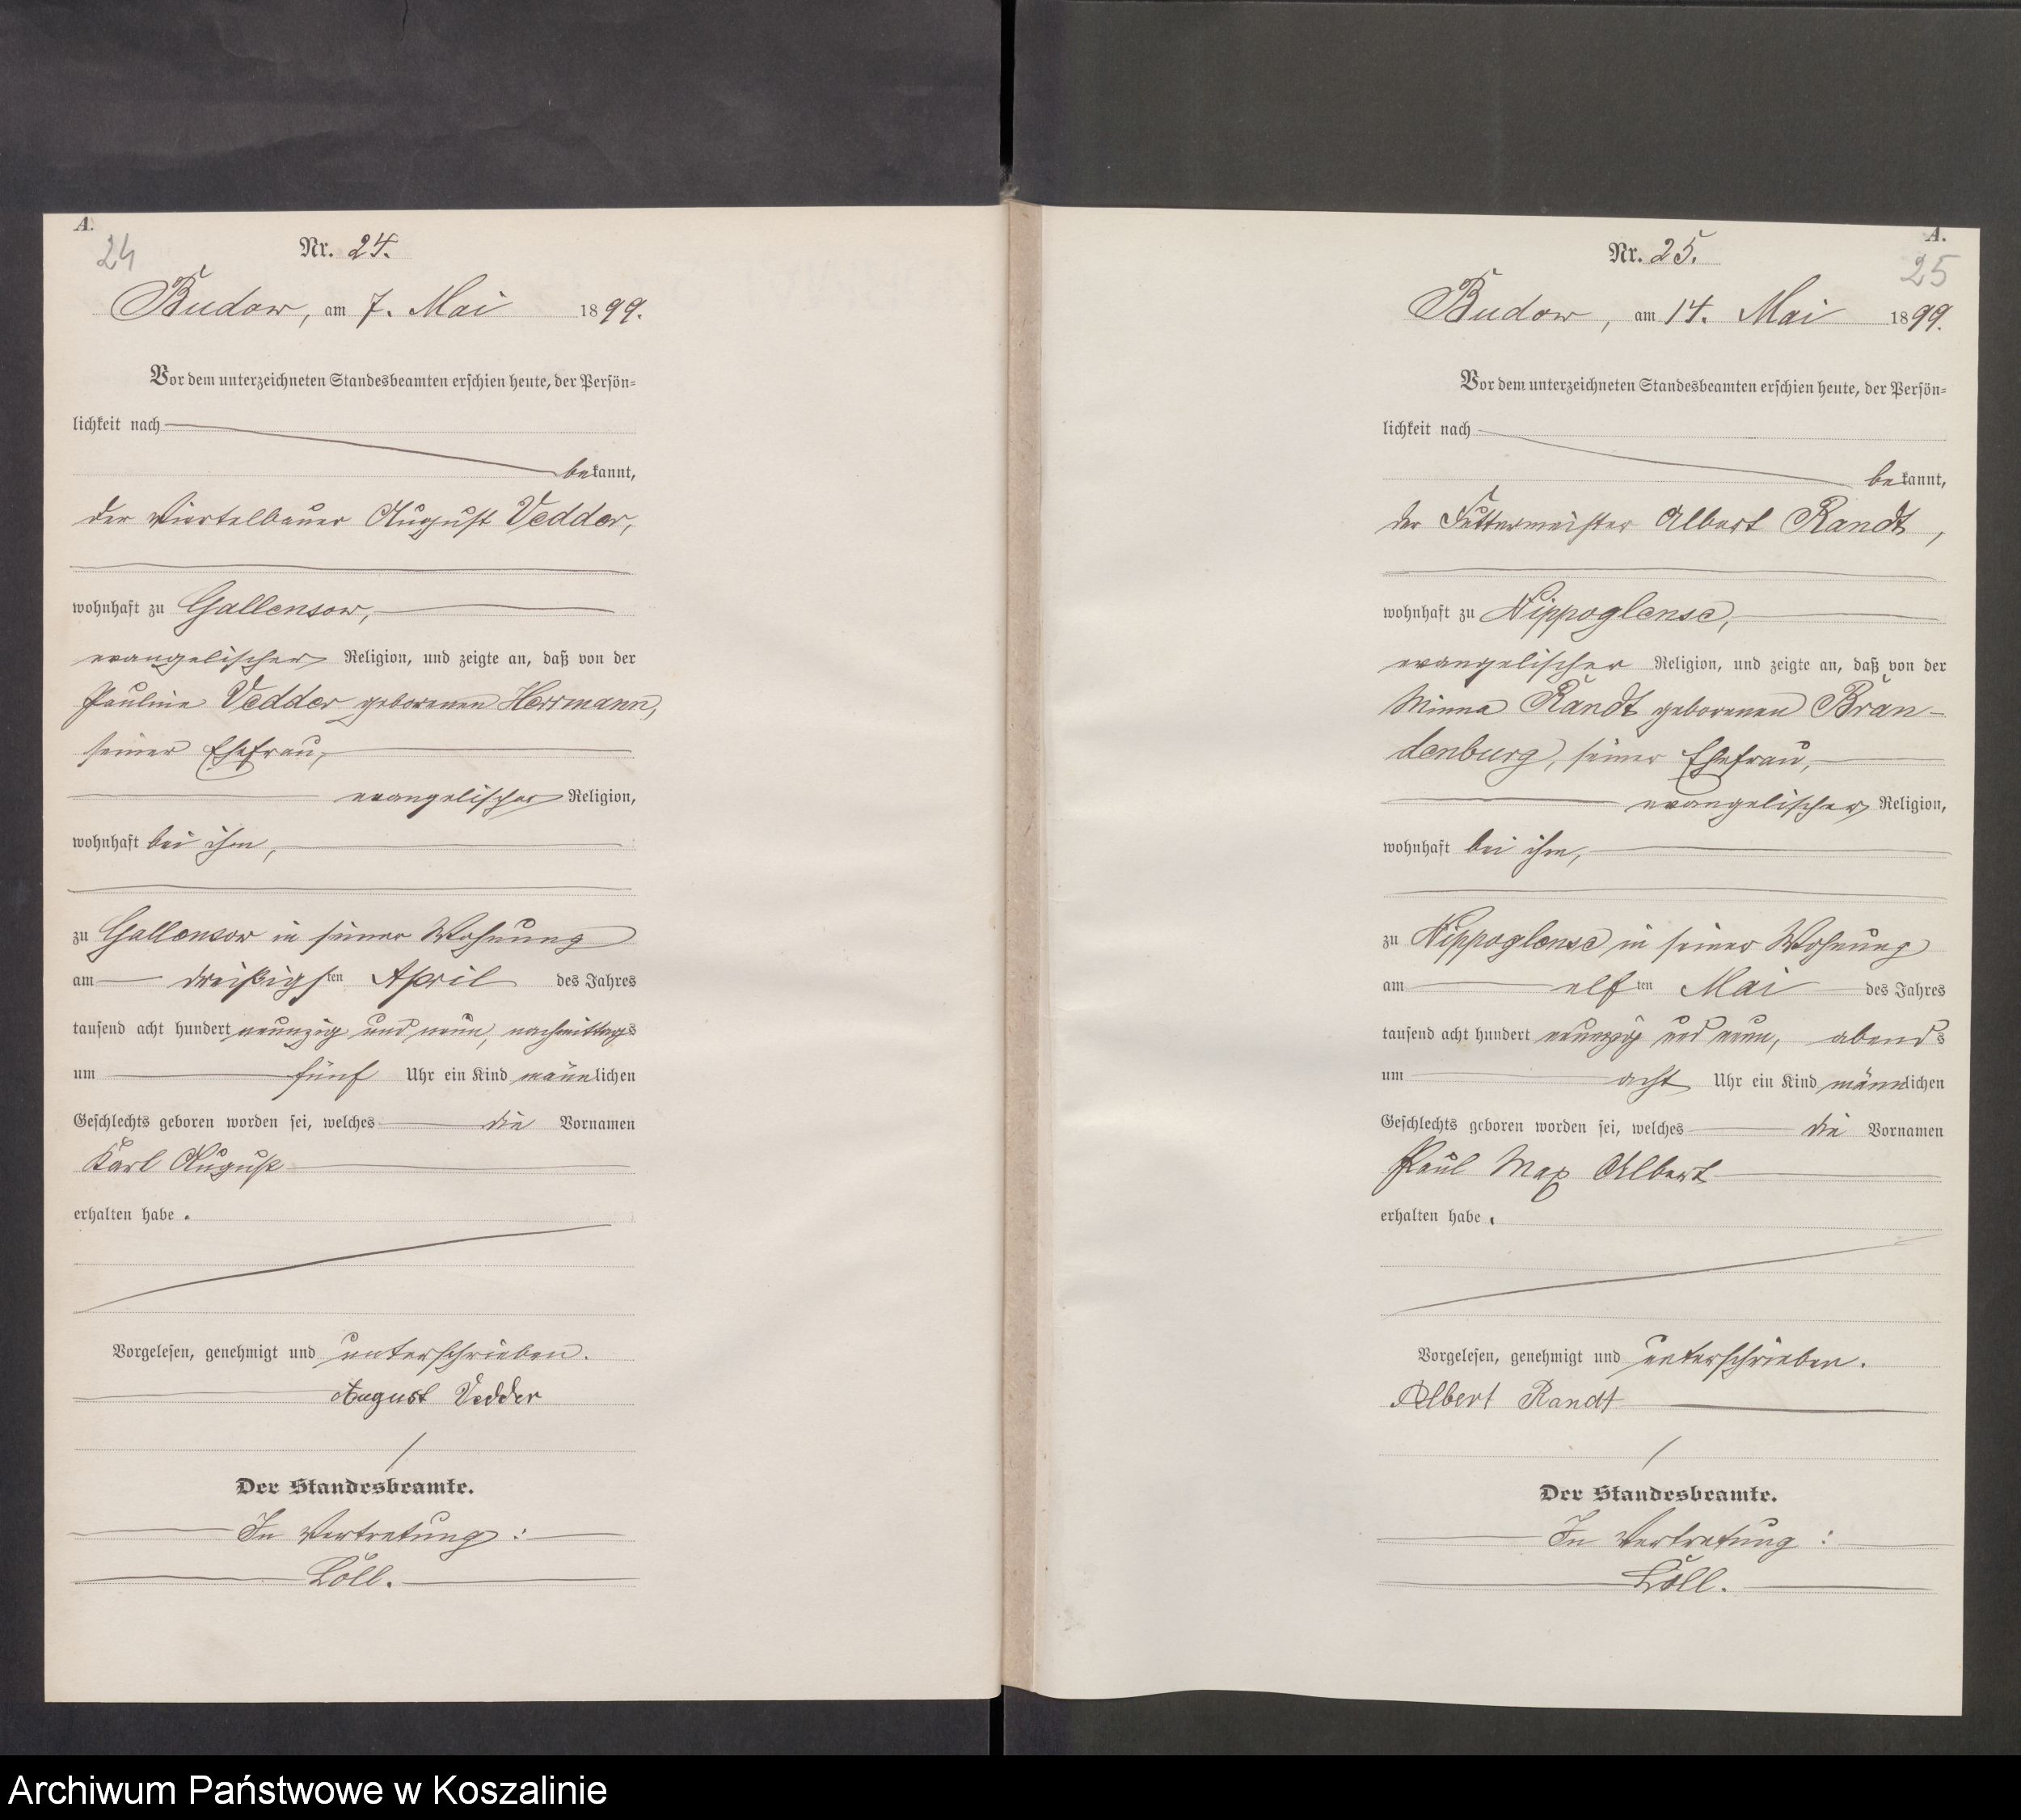 A.
24
Nr. 24.
Budow, am 7. Mai 1899.
Vor dem unterzeichneten Standesbeamten erschien heute, der Persön-
lichkeit nach
bekannt,
der Viertelbauer August Vedder,
wohnhaft zu Gallensow,
evangelischer Religion, und zeigte an, daß von der
Pauline Vedder geborenen Herrmann,
seiner Ehefrau,
evangelischer Religion,
wohnhaft bei ihm,
zu Gallensow in seiner Wohnung
am dreißigsten April des Jahres
tausend acht hundert neunzig und neun, nachmittags
um fünf Uhr ein Kind männlichen
Geschlechts geboren worden sei, welches die Vornamen
Karl August
erhalten habe.
Vorgelesen, genehmigt und unterschrieben.
August Vedder
Der Standesbeamte.
In Vertretung:
Löll.
A.
25
Nr. 25.
Budow, am 14. Mai 1899.
Vor dem unterzeichneten Standesbeamten erschien heute, der Persön-
lichkeit nach
bekannt,
der Futtermeister Albert Randt,
wohnhaft zu Nippoglense,
evangelischer Religion, und zeigte an, daß von der
Minna Randt geborenen Bran-
denburg, seiner Ehefrau,
evangelischer Religion,
wohnhaft bei ihm,
zu Nippoglense in seiner Wohnung
am elften Mai des Jahres
tausend acht hundert neunzig und neun, abends
um acht Uhr ein Kind männlichen
Geschlechts geboren worden sei, welches die Vornamen
Paul Max Albert
erhalten habe.
Vorgelesen, genehmigt und unterschrieben.
Albert Randt
Der Standesbeamte.
In Vertretung:
Löll.
Archiwum Państwowe w Koszalinie